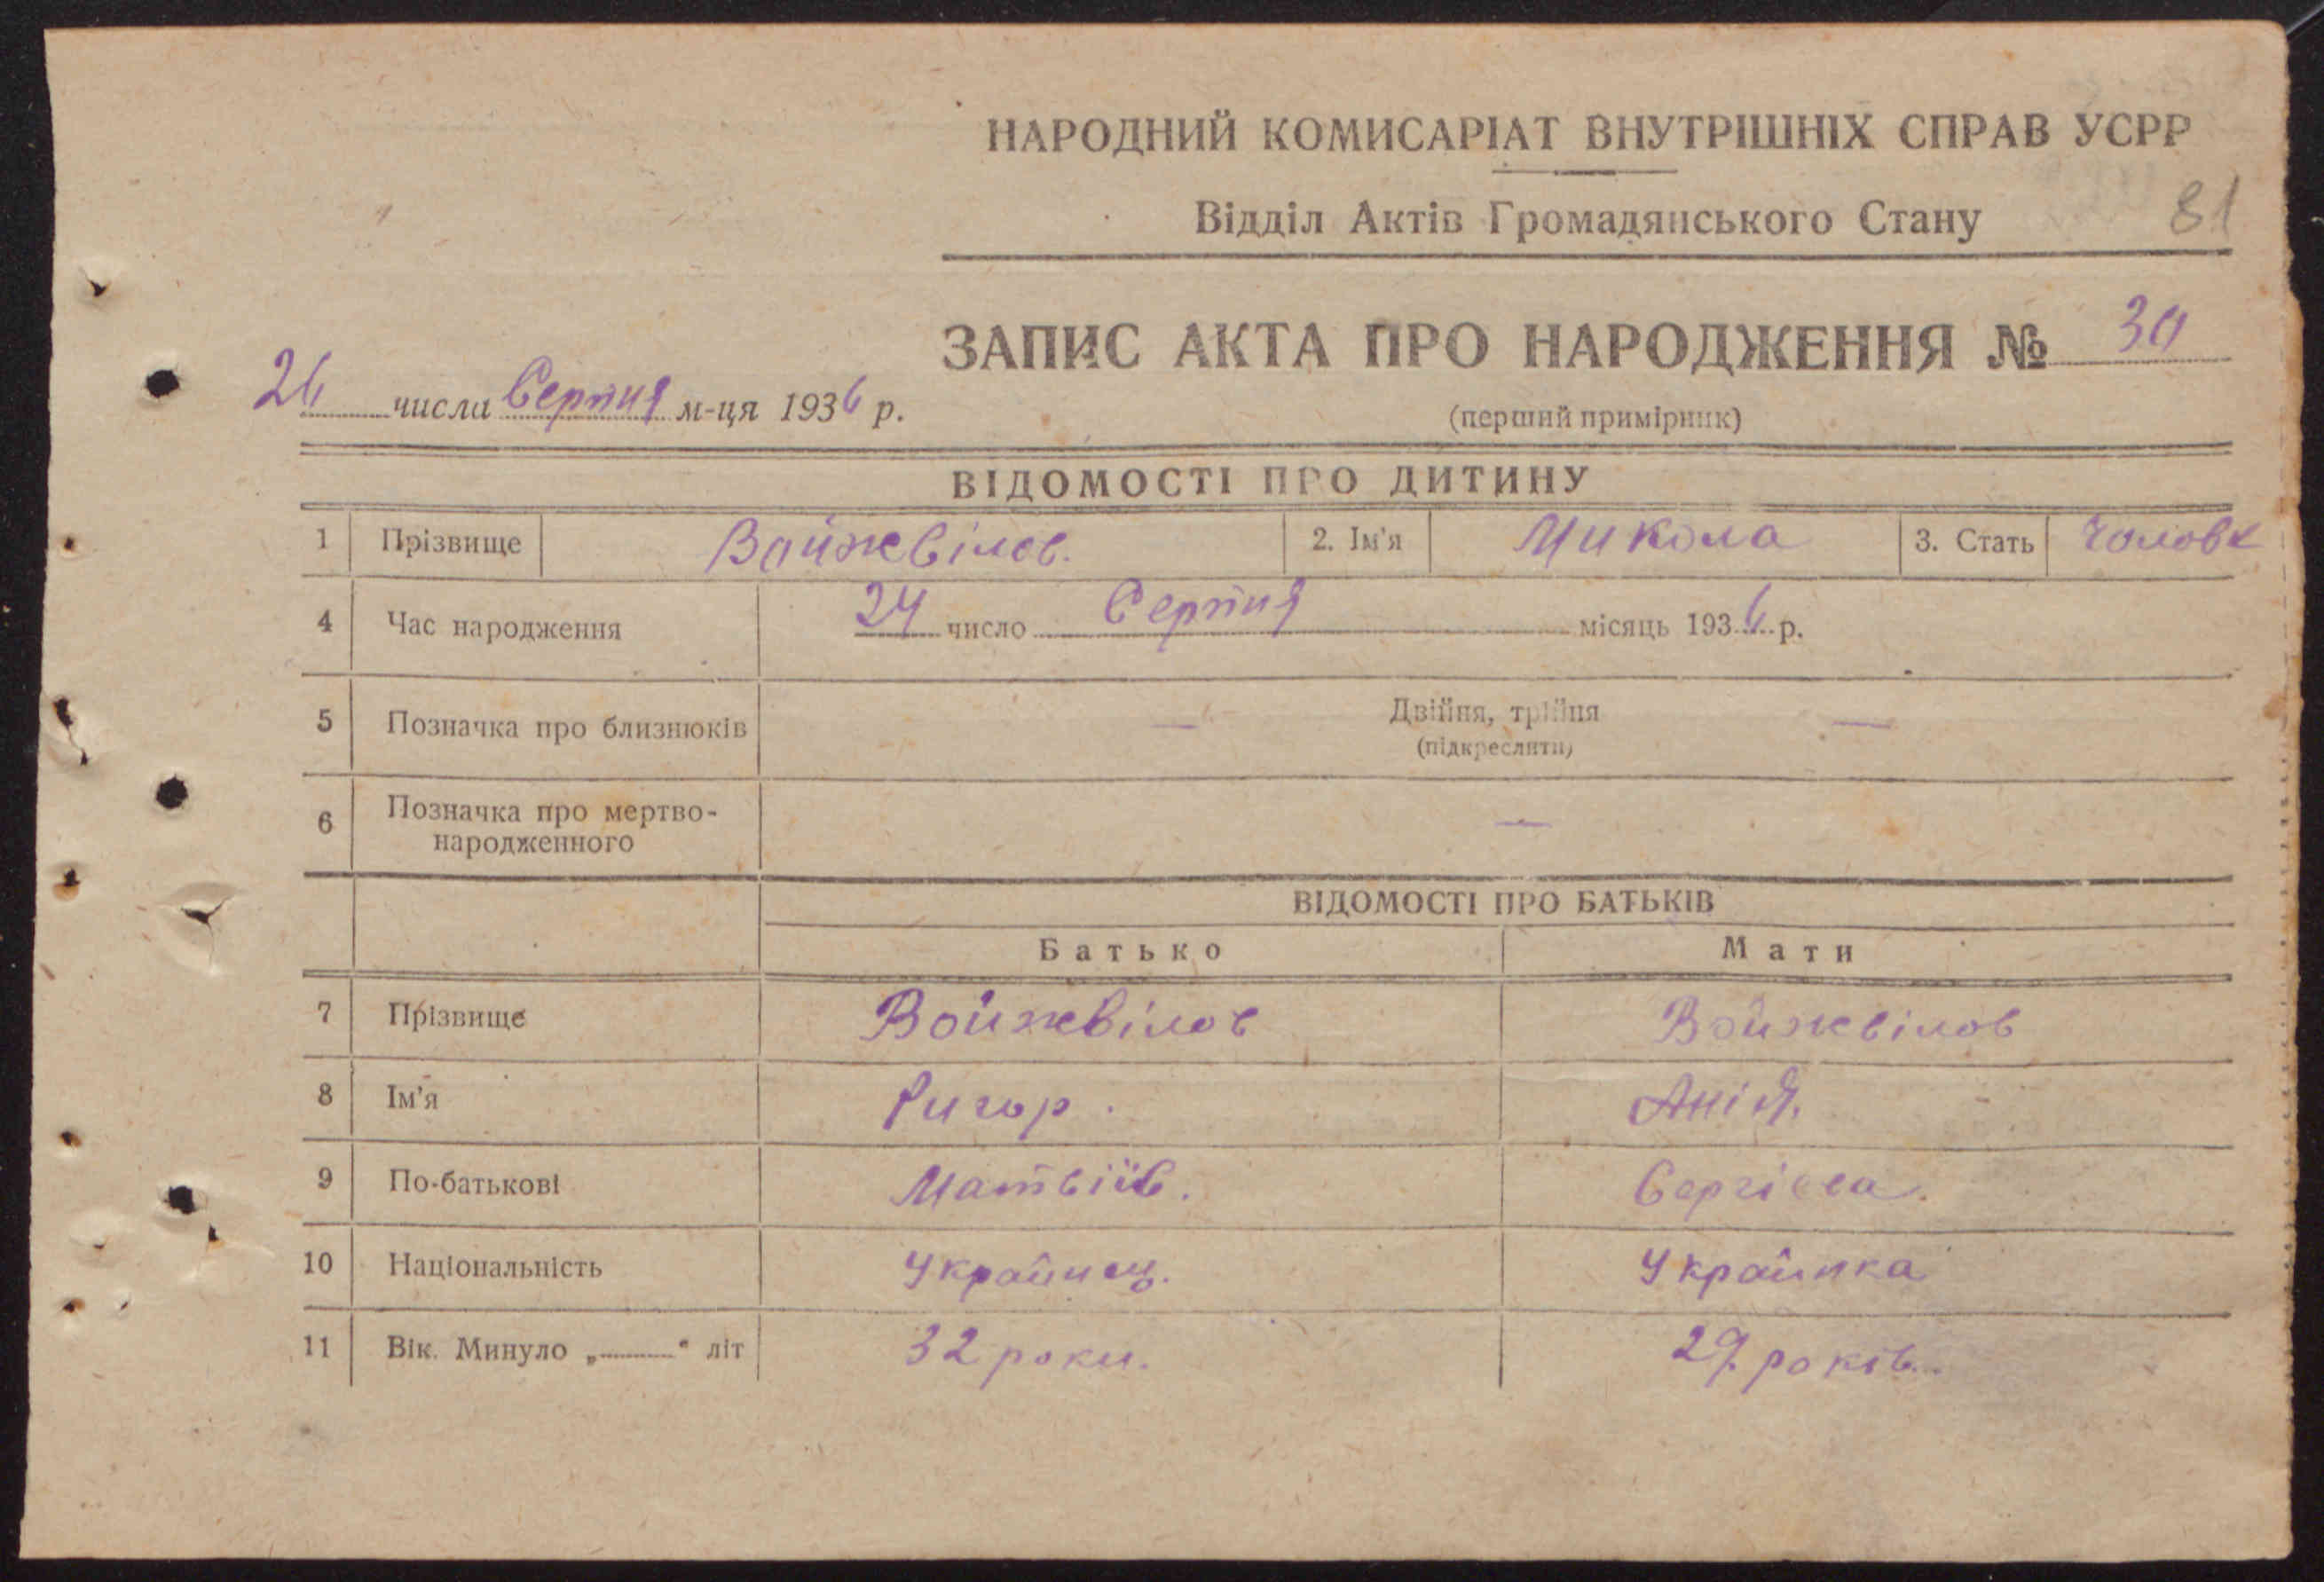 НАРОДНИЙ КОМИСАРІАТ ВНУТРІШНІХ СПРАВ УСРР
Відділ Актів Громадянського Стану
81
ЗАПИС АКТА ПРО НАРОДЖЕННЯ №
26 числа Серпня м-ця 1936 р.
(перший примірник)
ВІДОМОСТІ ПРО ДИТИНУ
1 Прізвище Войжвілов. 2. Ім'я Микола 3. Стать Чоловк
4 Час народження 24 число Серпня місяць 1936 р.
5 Позначка про близнюків — Двійня, трійня —
(підкреслити)
6 Позначка про мертво-
народженного —
ВІДОМОСТІ ПРО БАТЬКІВ
Батько Мати
7 Прізвище Войжвілов Войжвілов
8 Ім'я Ригор.
9 По-батькові Матвіїв.
10 Національність Українец. Українка
11 Вік. Минуло „ " літ 32 роки. 29 років.